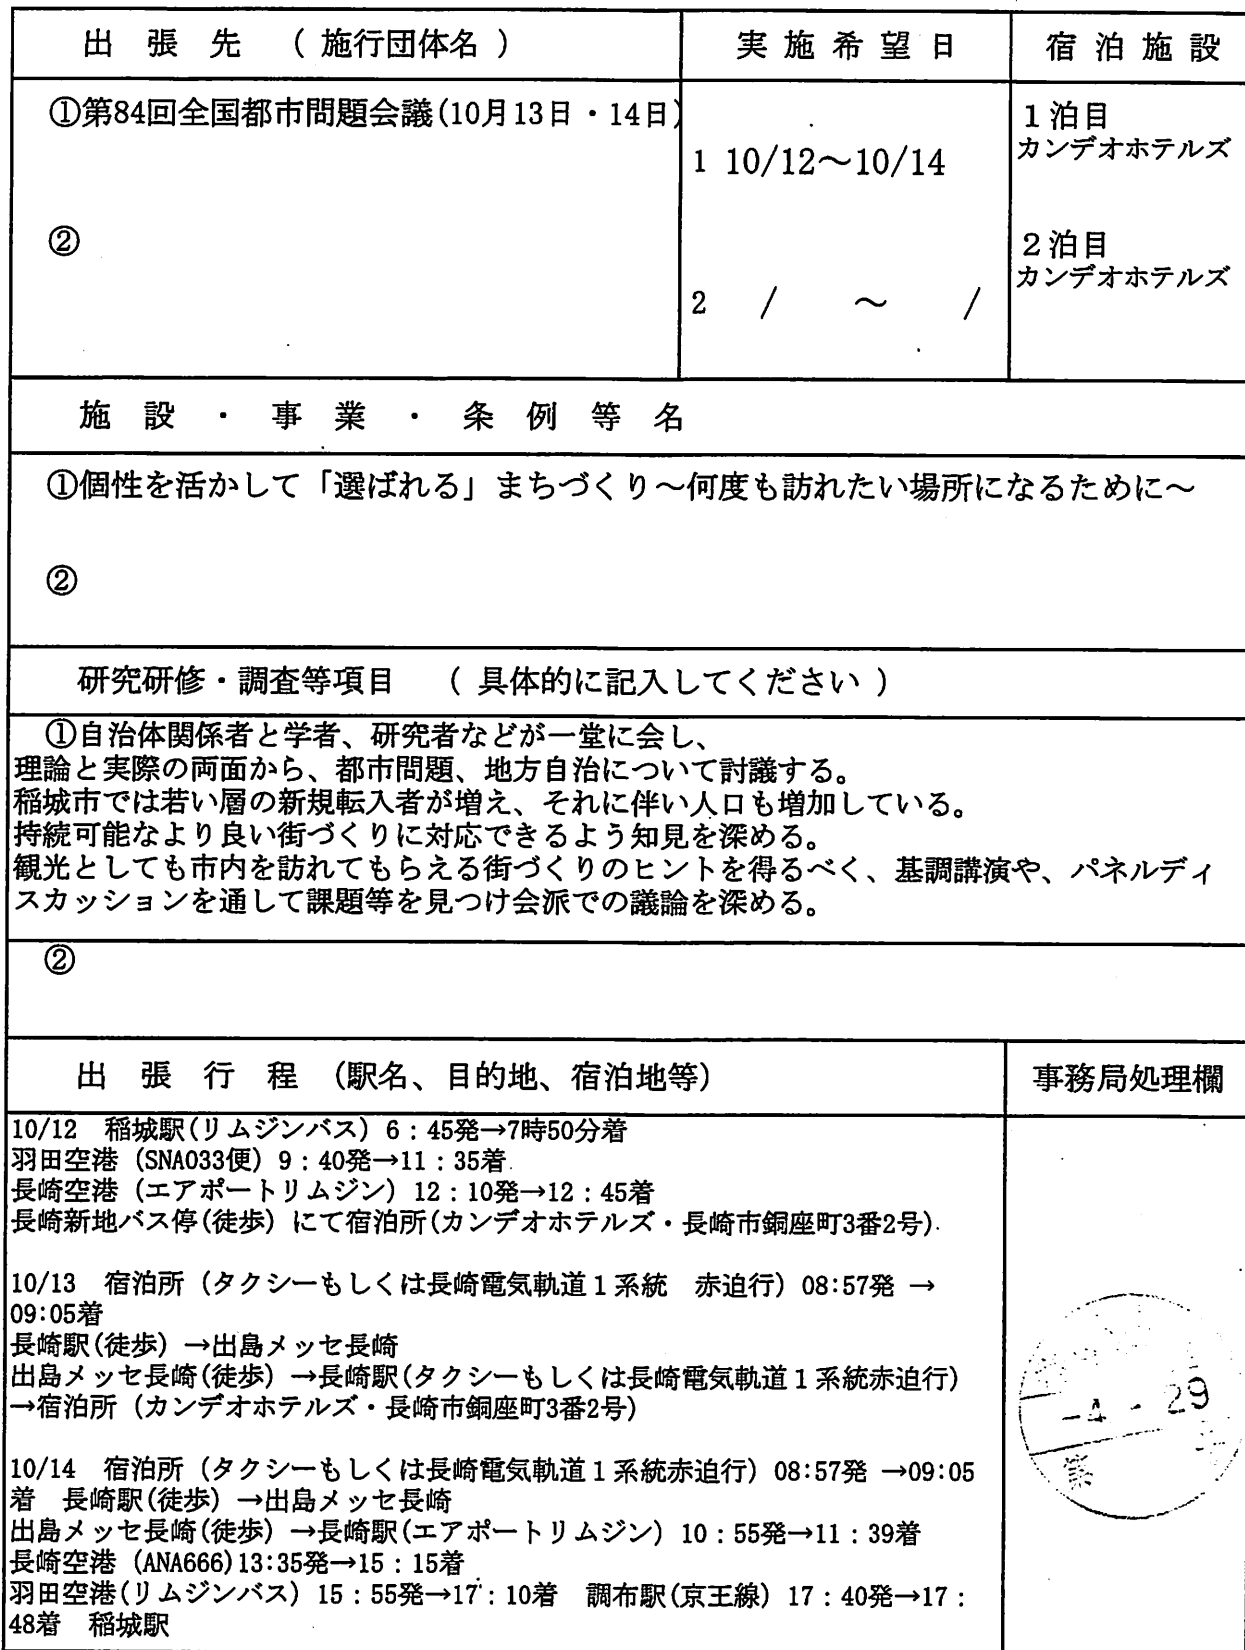 出 張 先 （ 施行団体名 ）
実 施 希 望 日
宿 泊 施 設
①第84回全国都市問題会議(10月13日・14日)
②
1 10/12～10/14
2 / ～ /
1泊目
カンデオホテルズ
2泊目
カンデオホテルズ
施 設 ・ 事 業 ・ 条 例 等 名
①個性を活かして「選ばれる」まちづくり～何度も訪れたい場所になるために～
②
研究研修・調査等項目 （ 具体的に記入してください ）
①自治体関係者と学者、研究者などが一堂に会し、
理論と実際の両面から、都市問題、地方自治について討議する。
稲城市では若い層の新規転入者が増え、それに伴い人口も増加している。
持続可能なより良い街づくりに対応できるよう知見を深める。
観光としても市内を訪れてもらえる街づくりのヒントを得るべく、基調講演や、パネルディ
スカッションを通して課題等を見つけ会派での議論を深める。
②
出 張 行 程 （駅名、目的地、宿泊地等）
事務局処理欄
10/12 稲城駅(リムジンバス) 6：45発→7時50分着
羽田空港（SNA033便）9：40発→11：35着
長崎空港（エアポートリムジン）12：10発→12：45着
長崎新地バス停(徒歩) にて宿泊所(カンデオホテルズ・長崎市銅座町3番2号)
10/13 宿泊所（タクシーもしくは長崎電気軌道１系統 赤迫行）08:57発 →
09:05着
長崎駅(徒歩) →出島メッセ長崎
出島メッセ長崎(徒歩) →長崎駅(タクシーもしくは長崎電気軌道１系統赤迫行)
→宿泊所（カンデオホテルズ・長崎市銅座町3番2号）
10/14 宿泊所（タクシーもしくは長崎電気軌道１系統赤迫行）08:57発 →09:05
着 長崎駅(徒歩) →出島メッセ長崎
出島メッセ長崎(徒歩) →長崎駅(エアポートリムジン) 10：55発→11：39着
長崎空港（ANA666)13:35発→15：15着
羽田空港(リムジンバス) 15：55発→17：10着 調布駅(京王線) 17：40発→17：
48着 稲城駅
-4 - 29